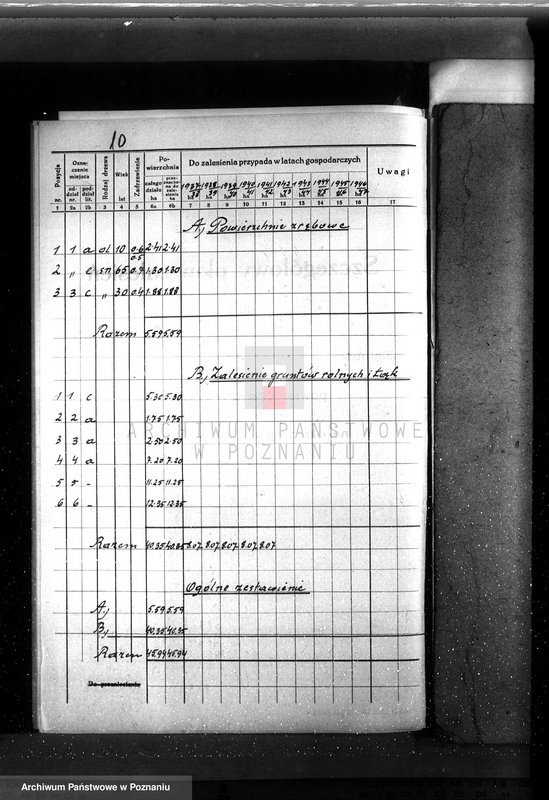 10
Pozycja nr. Oznaczenie miejsca oddział nr. poddział lit. Rodzaj drzewa Wiek lat Zadrzewienie Powierzchnia całego działu ha Do zalesienia przypada w latach gospodarczych Uwagi
1 2a 2b 3 4 5 6a 6b 7 8 9 10 11 12 13 14 15 16 17
A, Powierzchnie zrębowe
1 1 a ol 10 0.6 2.41 2.41
0.5
2 „ c sn 65 0.7 1.30 1.30
3 3 c „ 30 0.4 1.88 1.88
Razem 5.59 5.59
B, Zalesienie gruntów rolnych i łąk
1 1 c 5.30 5.30
2 2 a 1.75 1.75
3 3 a 2.50 2.50
4 4 a 7.20 7.20
5 5 - 11.25 11.25
6 6 - 12.35 12.35
Razem 40.35 40.35 8.07 8.07 8.07 8.07 8.07
Ogólne zestawienie
A, 5.59 5.59
B, 40.35 40.35
Razem 45.94 45.94
Do przeniesienia
ARCHIWUM PAŃSTWOWE
W POZNANIU
Archiwum Państwowe w Poznaniu